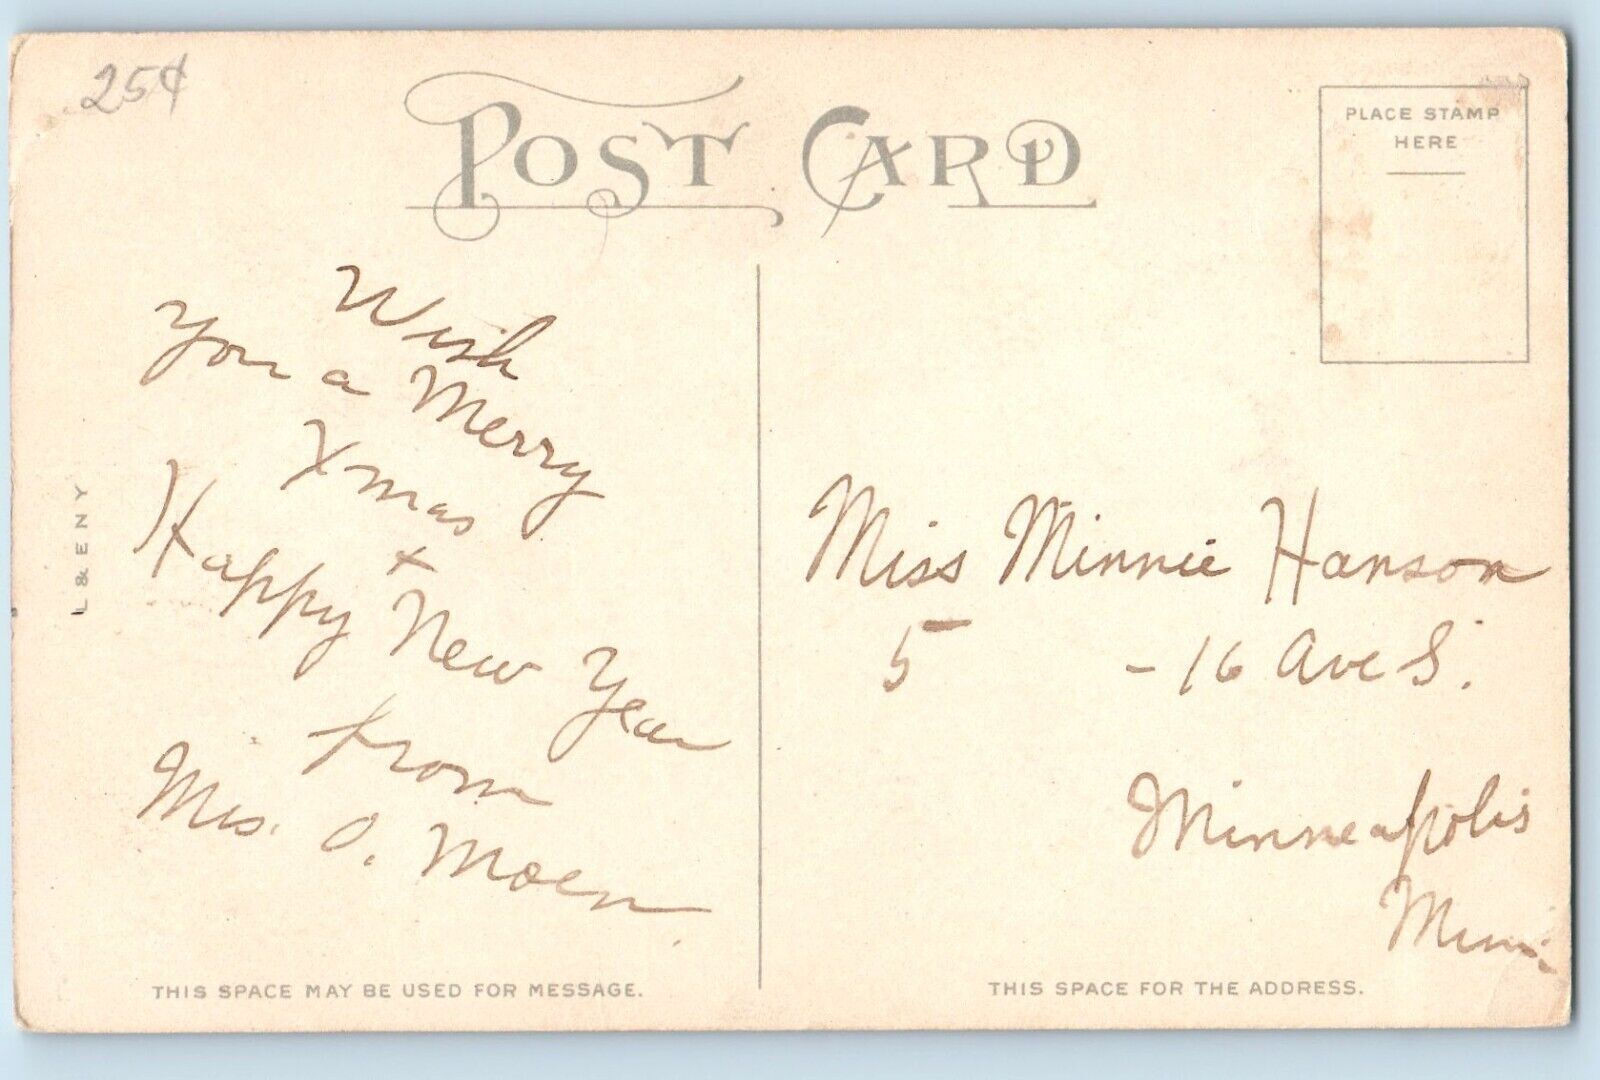 25¢
POST CARD
PLACE STAMP
HERE
Wish
you a Merry
Xmas
+
Happy New Year
from
Mrs. O. Moen
L & E N Y
Miss Minnie Hanson
5 - 16 Ave S.
Minneapolis
Minn.
THIS SPACE MAY BE USED FOR MESSAGE.
THIS SPACE FOR THE ADDRESS.